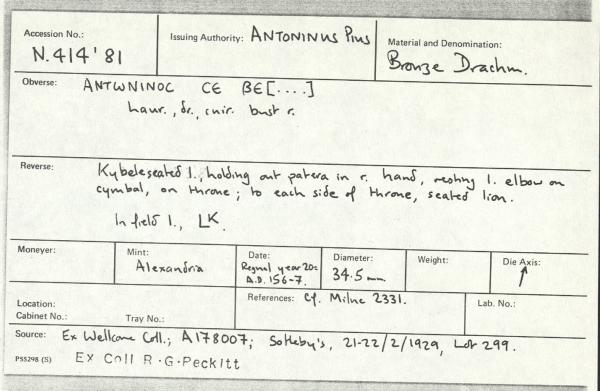 Accession No.:
N.414'81
Issuing Authority: ANTONINUS PIUS
Material and Denomination:
Bronze Drachm.
Obverse: ANTωNINOC CE BE[....]
laur., dr., cuir. bust r.
Reverse: Kybele seated l., holding out patera in r. hand, resting l. elbow on
cymbal, on throne; to each side of throne, seated lion.
In field l., LK.
Moneyer:
Mint:
Alexandria
Date:
Regnal year 20=
A.D. 156-7.
Diameter:
34.5mm
Weight:
Die Axis:
↑
Location:
Cabinet No.: Tray No.:
References: Cf. Milne 2331.
Lab. No.:
Source: Ex Wellcome Coll.; A178007; Sotheby's, 21-22/2/1929, Lot 299.
PS5298 (S) Ex Coll R.G.Peckitt